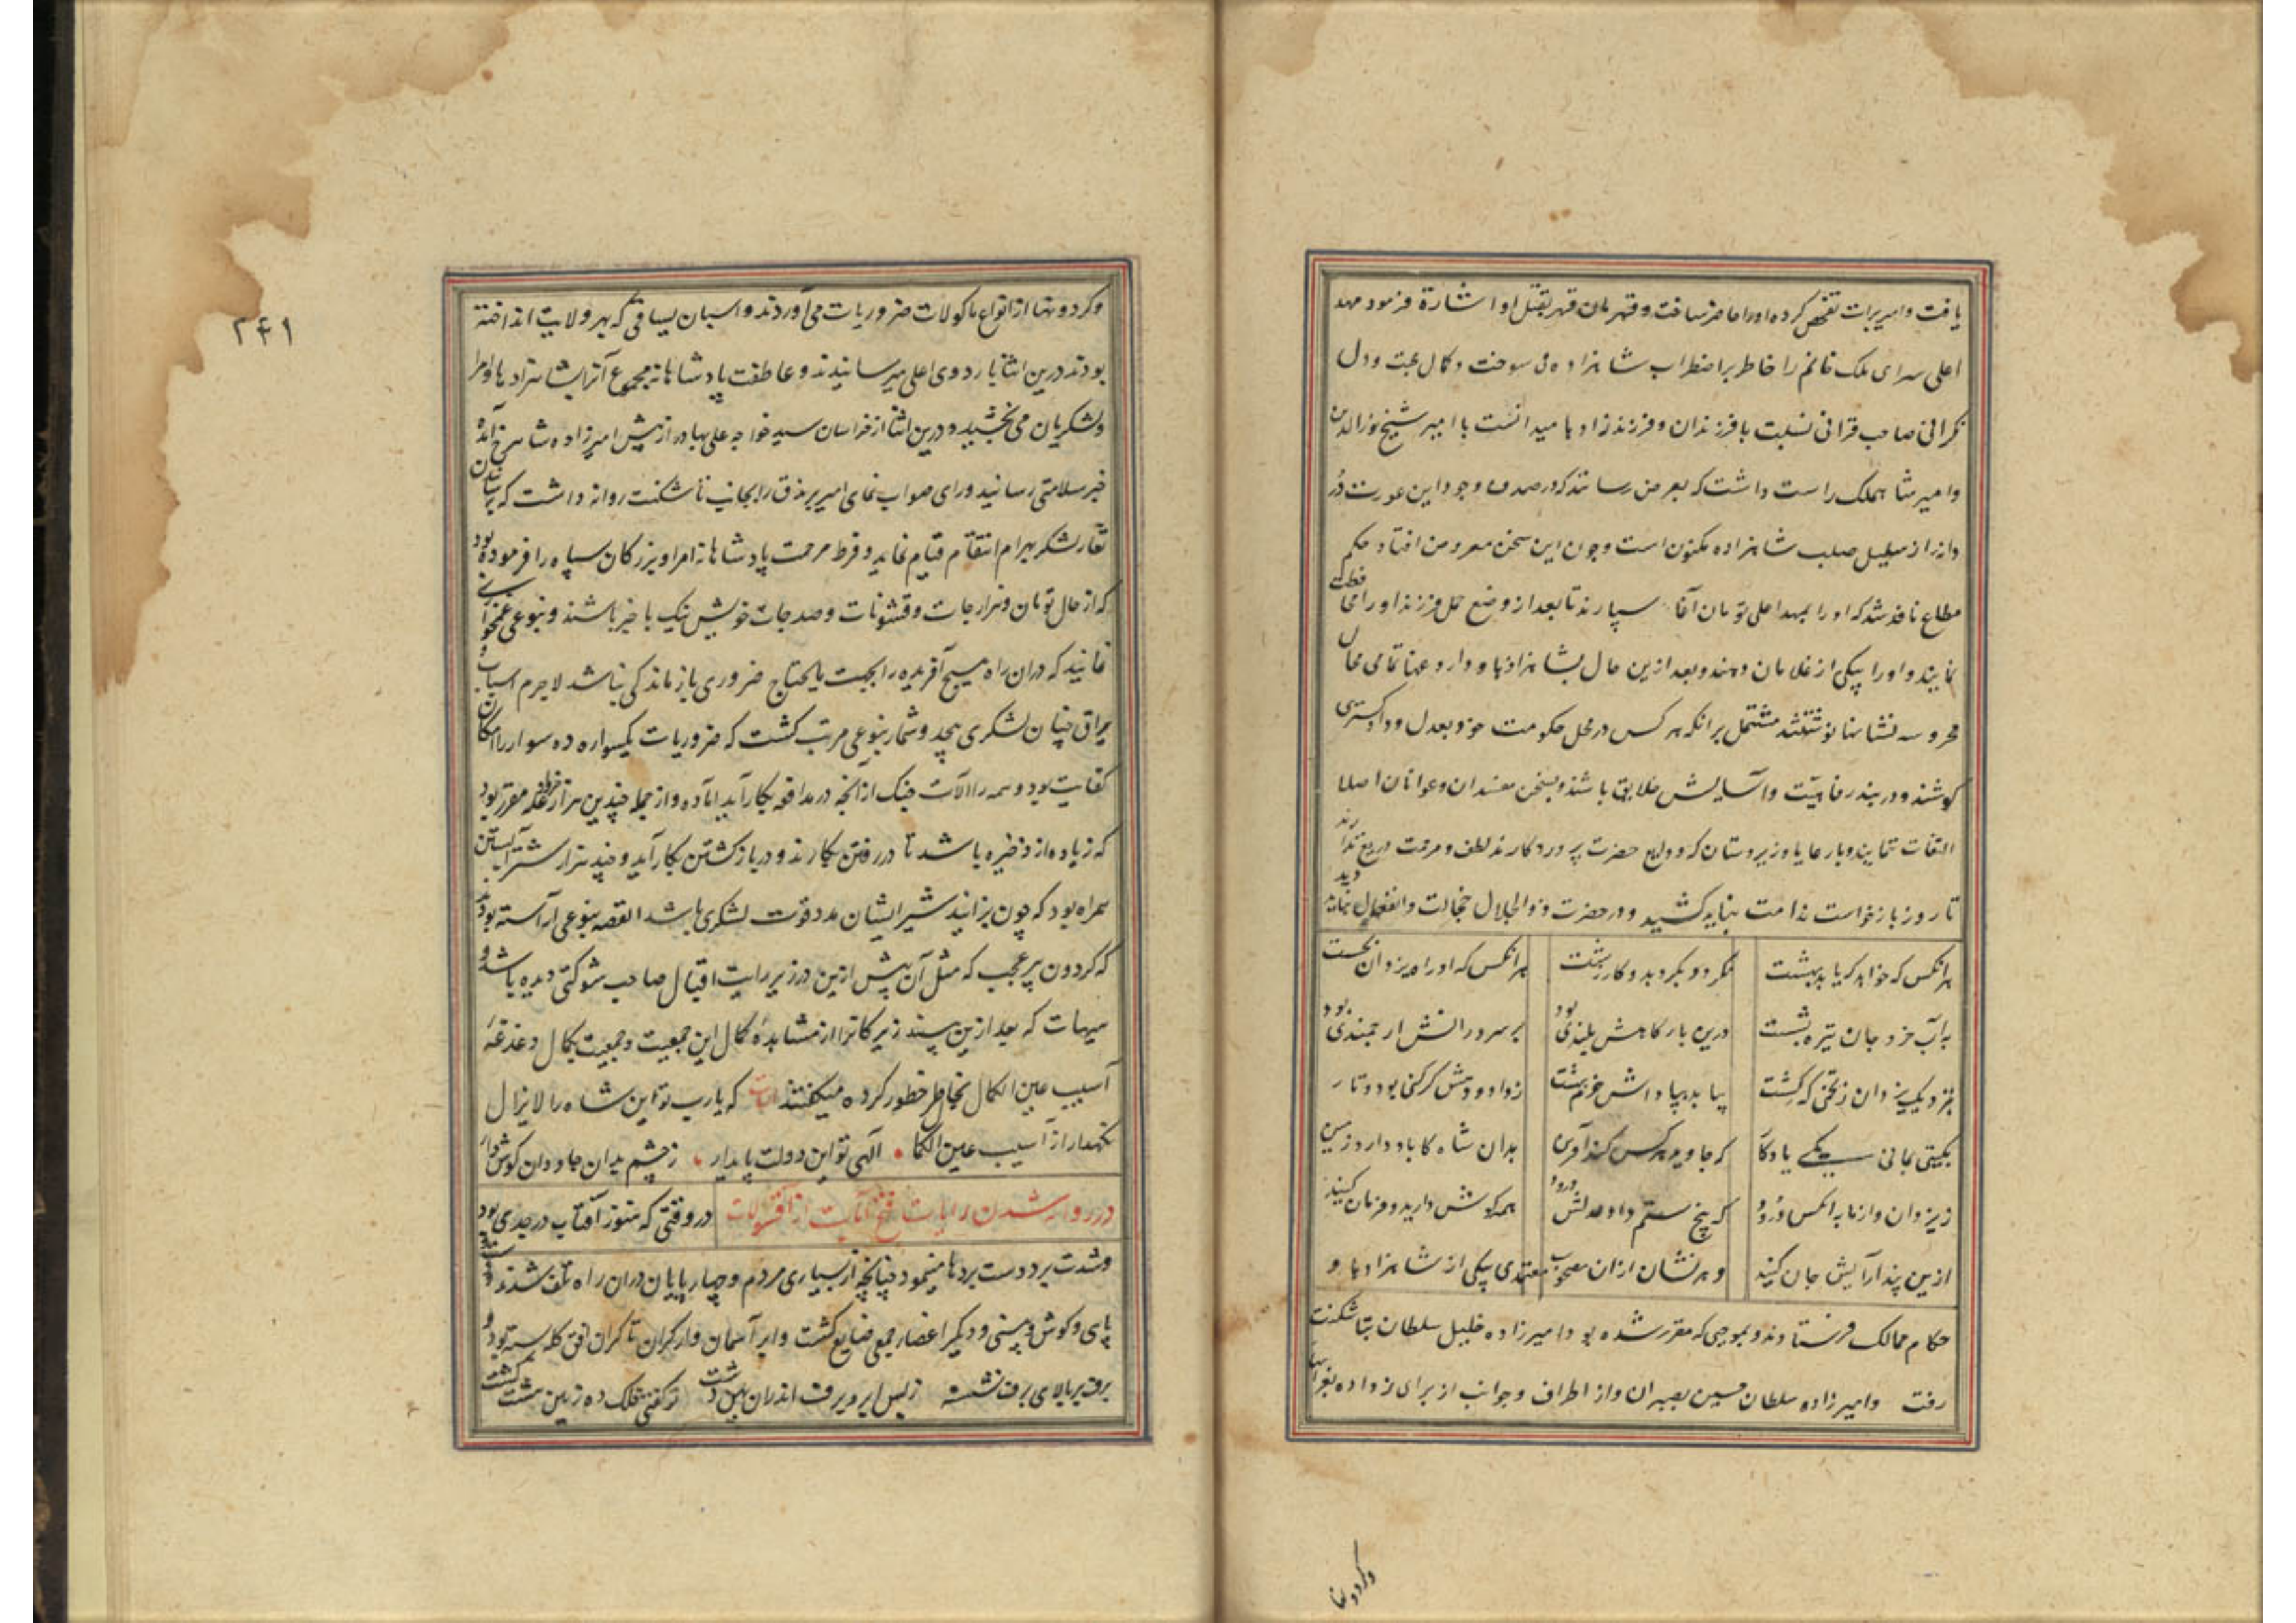 یافت و امیر برات تفحص کرده او را حاضر ساخت و قهرمان قهر بقتل او اشارة فرمود مهد
اعلی سرای ملک خانم را خاطر بر اضطراب شاهزاده می سوخت و کمال محبت و دل
نکرانی صاحب قرانی نسبت با فرزندان و فرزندزادها میدانست با امیر شیخ نورالدین
و امیر شاهملک راست داشت که بعرض رسانند که در صدف وجود این عورت دُر
دانه از سلیل صلب شاهزاده مکنون است و چون این سخن معروض افتاد حکم
مطاع نافذ شد که او را بمهد اعلی تومان آغا سپارند تا بعد از وضع حمل فرزند او را محافظت
نمایند و او را بیکی از غلامان دهند و بعد ازین حال بشاهزادها و داروغها تمامی محال
محروسه نشانها نوشتند مشتمل بر انکه هر کس در محل حکومت خود بعدل و دادکستری
کوشند و در بند رفاهیت و آسایش خلایق باشند و بسخن مفسدان و عوانان اصلا
التفات ننمایند و با رعایا و زیردستان که ودایع حضرت پروردکارند لطف و مرحمت دریغ ندارند
تا روز بازخواست ندامت نباید کشید و در حضرت ذوالجلال خجالت و انفعال نباید دید
هرانکس که خواهد که یابد بهشت نکردد بکرد بد و کار زشت هرانکس که او راه یزدان بجست
به آب خرد جان تیره بشست درین بارکاهش بلندی بود بر سروران ارجمندی بود
بنزدیک یزدان ز تخمی که کشت بیابد بپاداش خرم بهشت ز داد و دهش کر کنی بود و تار
بکیتی بمانی یکی یادکار که جاوید هر کس کند آفرین بدان شاه کاباد دارد زمین
ز یزدان و از ما به انکس درود که بیخ ستم داد عدلش درود همه کوش دارید و فرمان کنید
ازین پند آرایش جان کنید و هر نشان ازان مصحوب معتمدی بیکی از شاهزادها و
حکام ممالک فرستادند و بموجبی که مقرر شده بود امیرزاده خلیل سلطان بتاشکنت
رفت و امیرزاده سلطان حسین بصبران و از اطراف و جوانب از برای زواده بغرایها
و کردونها
و کردونها از انواع ماکولات ضروریات می آوردند و اسبان یساقی که بهر ولایت انداخته
بودند درین اثنا باردوی اعلی میرسانیدند و عاطفت پادشاهانه مجموع آنرا بشاهزادها و امرا
و لشکریان می بخشید و درین اثنا از خراسان سید خواجه علی بهادر از پیش امیرزاده شاهرخ آمده
خبر سلامتی رسانید و رای صواب نمای امیر برندق را بجانب تاشکنت روانه داشت که برساندن
تغار لشکر بهرام انتقام قیام نماید و فرط مرحمت پادشاهانه امرا و بزرکان سپاه را فرموده بود
که از حال تومان و هزارجات و قشونات و صدجات خویش نیک باخبر باشند و بنوعی غمخوارکی
نمایند که دران راه هیچ آفریده را بجهت مایحتاج ضروری بازماندکی نباشد لاجرم اسباب و
یراق چنان لشکری بیحد و شمار بنوعی مرتب کشت که ضروریات یکسواره ده سوار را امکان
کفایت بود و همه را آلات جنک از آنچه در مدافعه بکار آید آماده و از جمله چندین هزار خروار غله مقرر بود
که زیاده از ذخیره باشد تا در رفتن بکارند و در بازکشتن بکار آید و چند هزار شتر آبستن
همراه بود که چون بزایند شیر ایشان مدد قوت لشکری باشد القصه بنوعی آراسته بودند
که کردون پر عجب که مثل آن پیش ازین در زیر رایت اقبال صاحب شوکتی دیده باشد و
هیهات که بعد ازین بیند زیرکانرا از مشاهدهٔ کمال این جمعیت و جمعیت بکمال دغدغهٔ
آسیب عین الکمال بخاطر خطور کرده میکفتند ابیات که یارب تو این شاه را لایزال
نکهدار از آسیب عین الکمال الهی تو این دولت پایدار ز چشم بدان جاودان کوش دار
در روانه شدن رایات فتح آیات از آقسولات در وقتی که هنوز آفتاب در جدی بود
و شدت برد دست بردها مینمود چنانچه از بسیاری مردم و چهارپایان دران راه تلف شدند و دست
و پای و کوش و بینی و دیکر اعضاء جمعی ضایع کشت و ابر آسمان وار کران تا کران افق کله بسته بود و
برف بر بالای برف نشسته ز بس ابر و برف اندران پهن دشت تو کفتی فلک ده زمین هشت کشت
۲۴۱